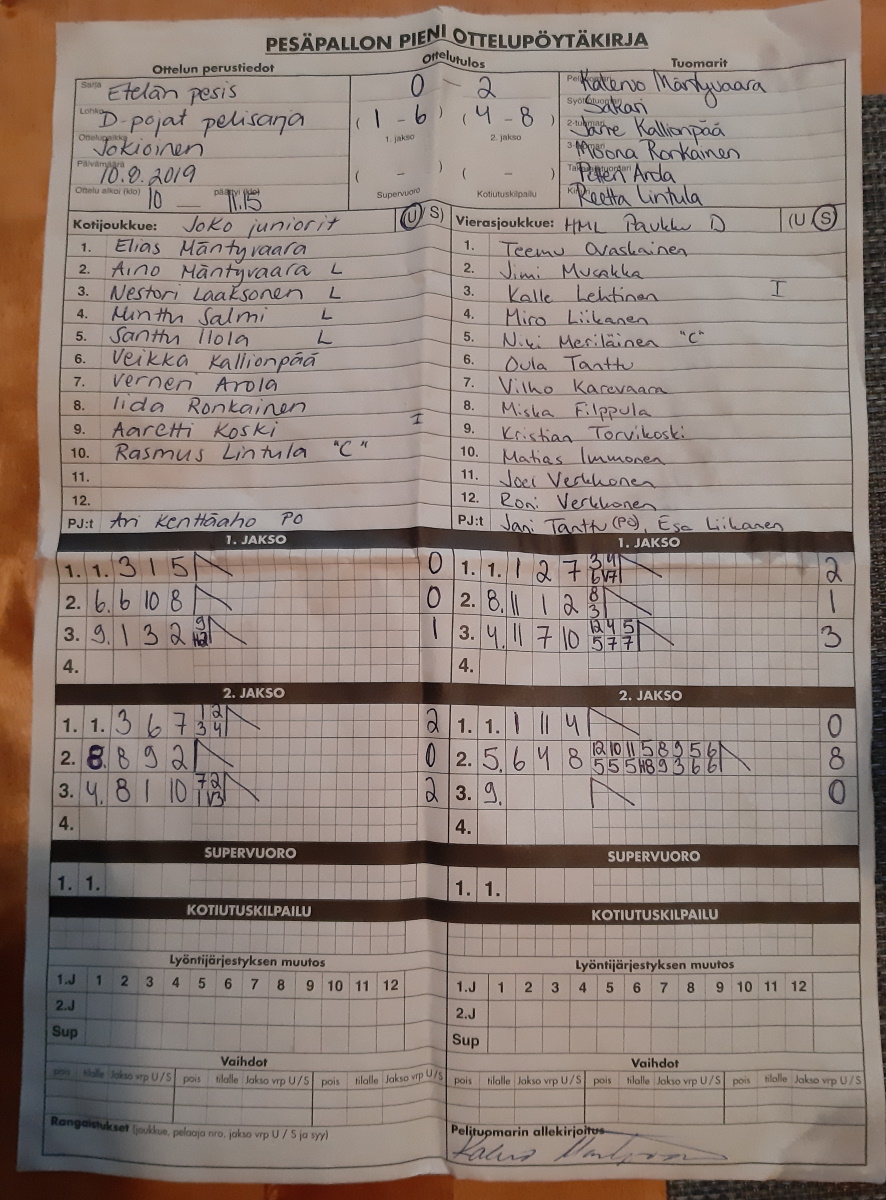 PESÄPALLON PIENI OTTELUPÖYTÄKIRJA
Ottelun perustiedot
Ottelutulos
Tuomarit
Sarja Etelän pesis
0 - 2
Kalervo Mäntyvaara
Lohko D-pojat pelisarja
(1 - 6) (4 - 8)
1. jakso 2. jakso
Sakari
Jokioinen
Janne Kallionpää
Päivämäärä 10.8.2019
( - ) ( - )
Moona Ronkainen
Petteri Arola
Ottelu alkoi (klo) 10 — 11.15
Supervuoro Kotiutuskilpailu
Reetta Lintula
Kotijoukkue: Joko juniorit (U S)
1. Elias Mäntyvaara
2. Aino Mäntyvaara L
3. Nestori Laaksonen L
4. Minttu Salmi L
5. Santtu Ilola L
6. Veikka Kallionpää
7. Verneri Arola
8. Iida Ronkainen
9. Aaretti Koski I
10. Rasmus Lintula "C"
11.
12.
PJ:t Ari Kenttäaho PO
Vierasjoukkue: HML Paukku D (U S)
1. Teemu Ovaskainen
2. Jimi Musakka
3. Kalle Lehtinen I
4. Miro Liikanen
5. Niki Meriläinen "C"
6. Oula Tanttu
7. Vilho Karevaara
8. Miska Filppula
9. Kristian Torvikoski
10. Matias Immonen
11. Joel Verkkonen
12. Roni Verkkonen
PJ:t Jani Tanttu (PO), Esa Liikanen
1. JAKSO
1. 1. 3 1 5 0
2. 6. 6 10 8 0
3. 9. 1 3 2 9 H2 1
4.
2. JAKSO
1. 1. 3 6 7 1 2 3 4 2
2. 8. 8 9 2 0
3. 4. 8 1 10 7 2 1 V3 2
4.
SUPERVUORO
1. 1.
KOTIUTUSKILPAILU
Lyöntijärjestyksen muutos
1.J 1 2 3 4 5 6 7 8 9 10 11 12
2.J
Sup
Vaihdot
pois tilalle Jakso vrp U / S pois tilalle Jakso vrp U / S pois tilalle Jakso vrp U / S
Rangaistukset (joukkue, pelaaja nro, jakso vrp U / S ja syy)
1. JAKSO
1. 1. 1 2 7 3 4 6 V7 2
2. 8. 11 1 2 8 3 1
3. 4. 11 7 10 12 4 5 5 7 7 3
4.
2. JAKSO
1. 1. 1 11 4 0
2. 5. 6 4 8 12 10 11 5 8 9 5 6 5 5 5 H8 9 3 6 6 8
3. 9. 0
4.
SUPERVUORO
1. 1.
KOTIUTUSKILPAILU
Lyöntijärjestyksen muutos
1.J 1 2 3 4 5 6 7 8 9 10 11 12
2.J
Sup
Vaihdot
pois tilalle Jakso vrp U / S pois tilalle Jakso vrp U / S pois tilalle Jakso vrp U / S
Pelituomarin allekirjoitus